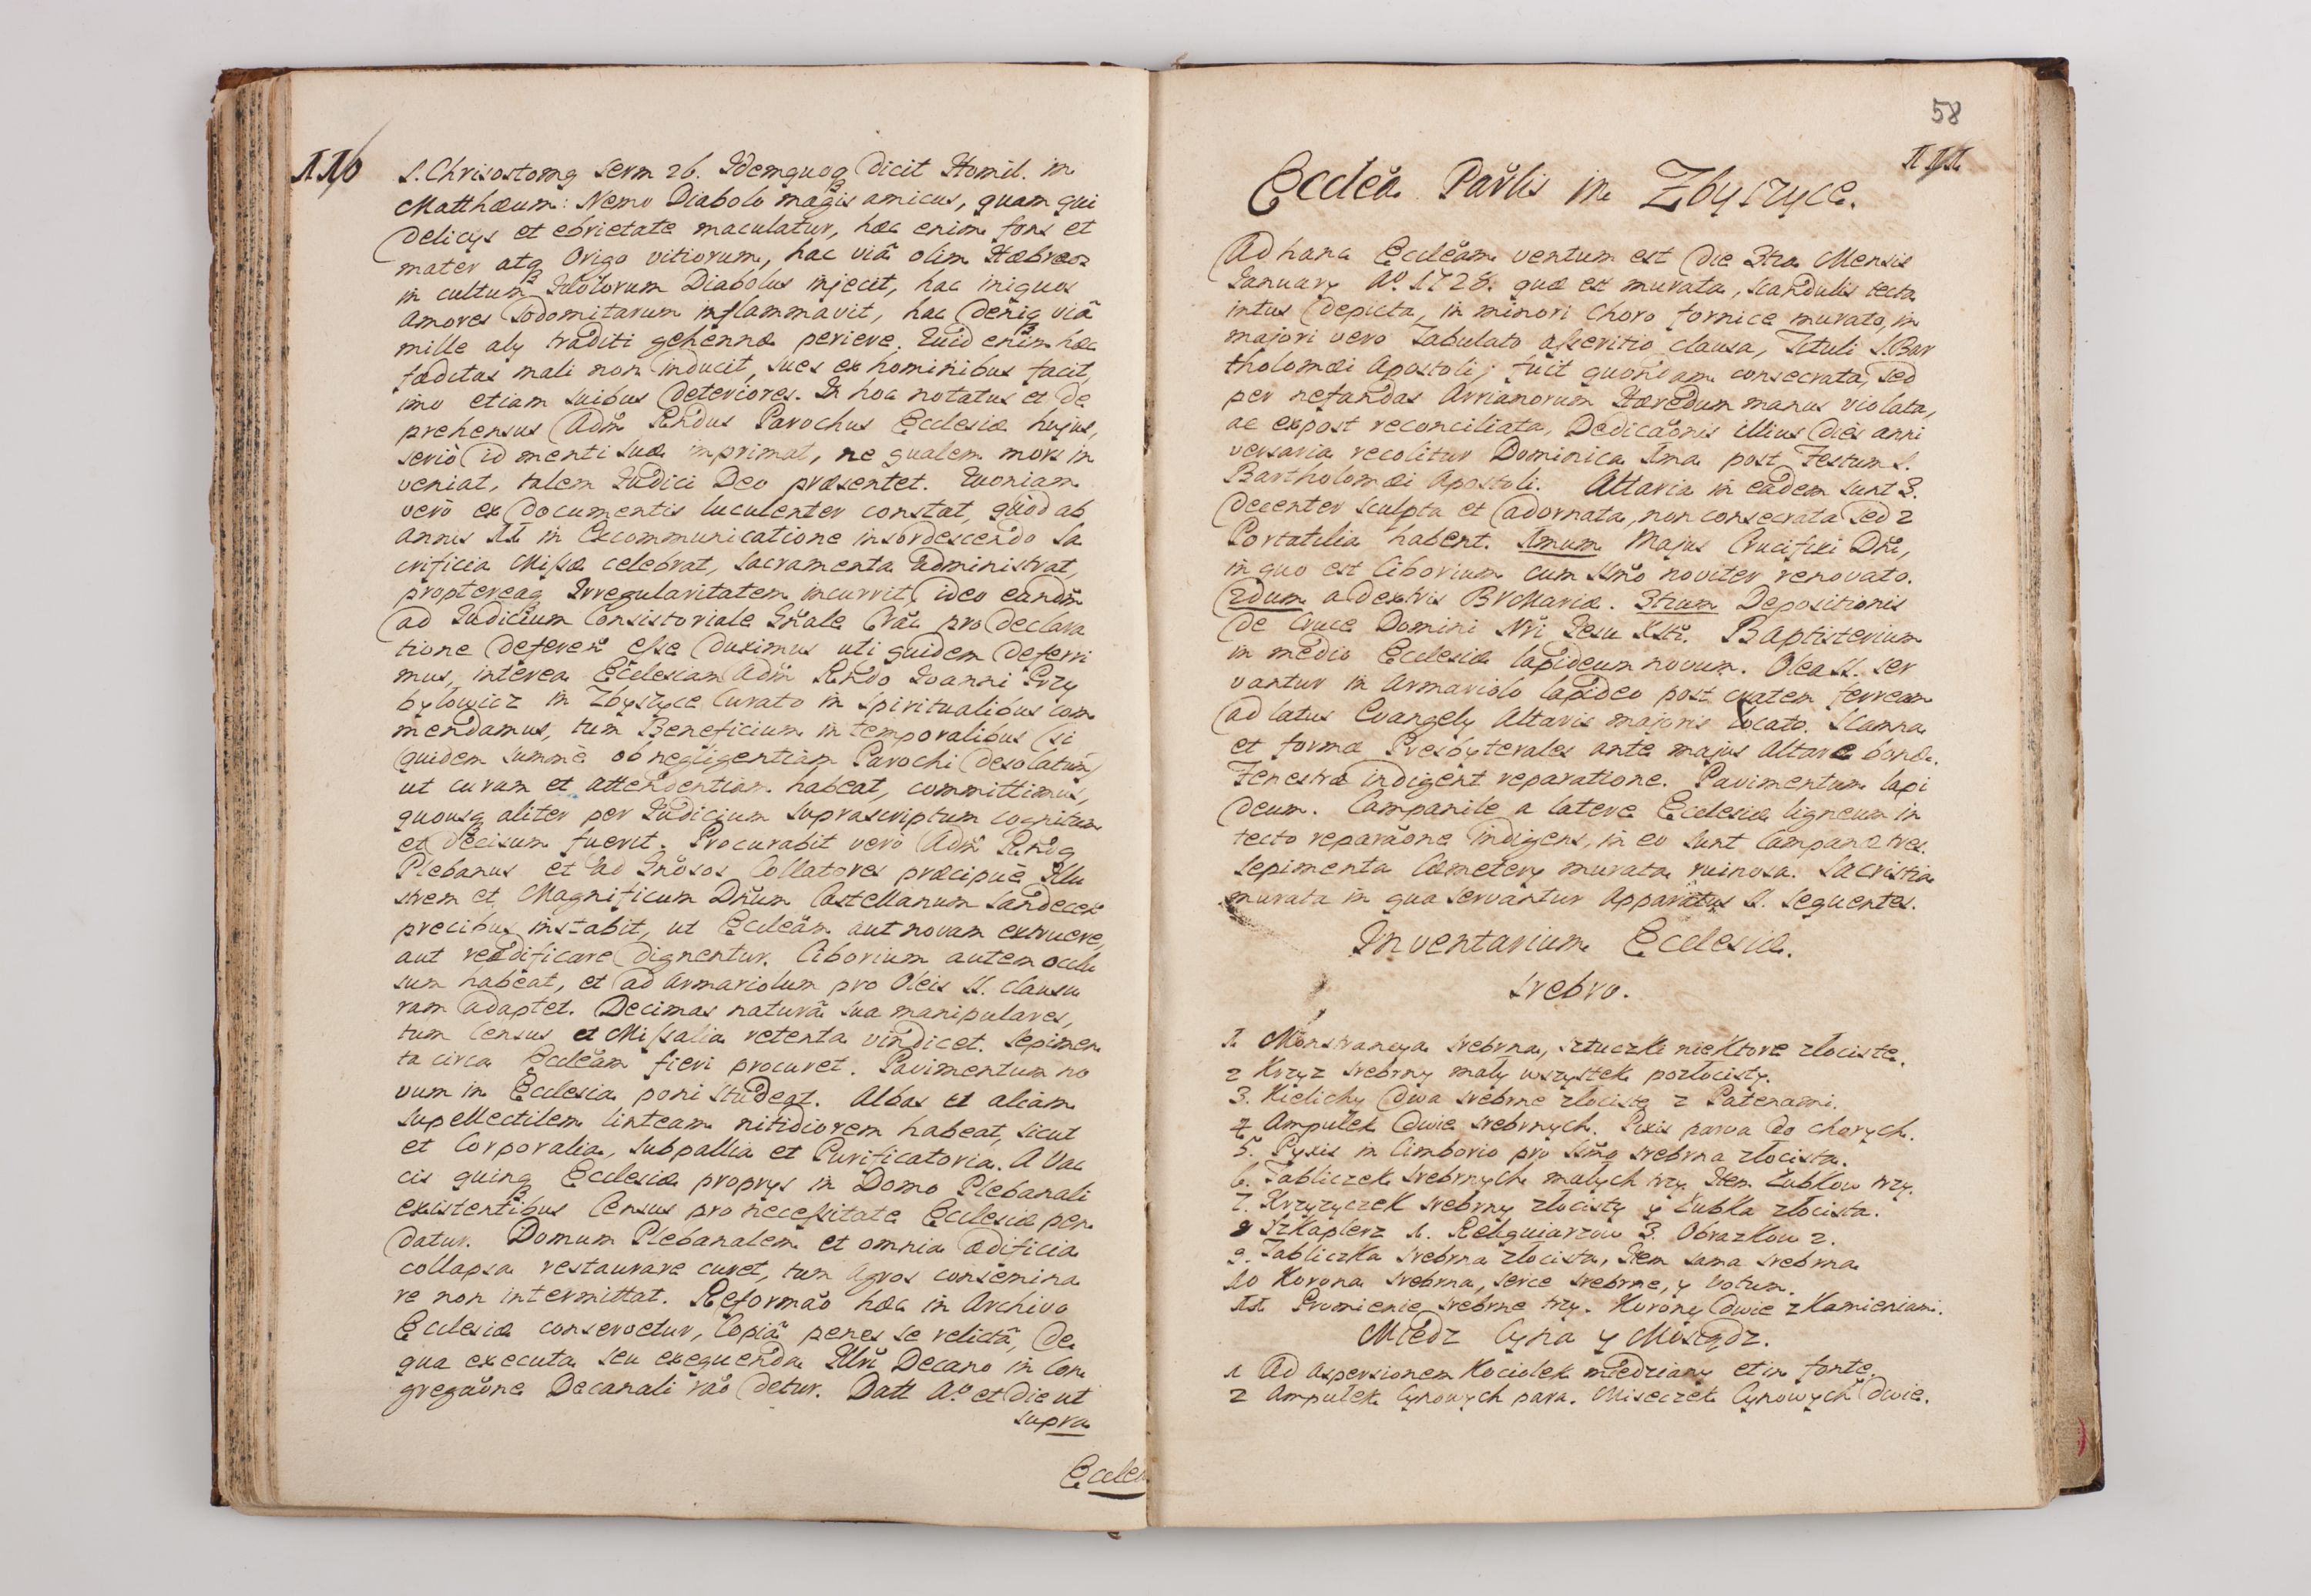 116
S. Chrisostomq Serm 26. Idemquoq dicit Homil. in
Matthæum: Nemo Diabolo magis amicus, quam qui
delicijs et ebrietate maculatur, hæc enim fons et
mater atq Origo vitiorum, hac viâ olim Hæbreos
in cultum Idolorum Diabolus injecit, hac iniquos
amores Sodomitarum inflammavit, hac deniq viâ
mille alij traditi gehennæ periere. Quid enim hæc
fæditas mali non inducit, sues ex hominibus facit,
imo etiam suibus deteriores. In hoc notatus et de
prehensus Adm Rndus Parochus Ecclesiæ hujus,
seriò id menti suæ imprimat, ne qualem mors in
veniat, talem Judici Deo præsentet. Quoniam
verò ex documentis luculenter constat, quòd ab
Annis 11 in Excommunicatione insordescendo Sa
crificia Missæ celebrat, Sacramenta administrat,
proptereaq Irregularitatem incurrit, ideo eandm
ad Judicium Consistoriale Gnale Crac pro declara
tione deferen esse duximus uti quidem deferri
mus, interea Ecclesiam Adm Rndo Joanni Przy
byłowicz in Zbyszyce Curato in Spiritualibus com
mendamus, tum Beneficium in temporalibus (si
quidem summè ob negligentiam Parochi desolatum)
ut curam et attendentiam habeat, committimus,
quousq aliter per Judicium suprascriptum cognitum
et decisum fuerit. Procurabit vero Adm Rndq
Plebanus et ad Gnosos Collatores præcipuè Illu
strem et Magnificum Dnum Castellanum Sandecen
precibus instabit, ut Eccleam aut novam extruere,
aut reædificare dignentur. Ciborium autem occlu
sum habeat, et ad Armariolum pro Oleis SS. clausu
ram adaptet. Decimas naturâ sua manipulares,
tum Census et Missalia retenta vindicet. Sepimen
ta circa Eccleam fieri procuret. Pavimentum no
vum in Ecclesia poni studeat. Albas et aliam
supellectilem linteam nitidiorem habeat, sicut
et Corporalia, Subpallia et Purificatoria. A Vac
cis quinq Ecclesiæ proprys in Domo Plebanali
existentibus Census pro necessitate Ecclesiæ pen
datur. Domum Plebanalem et omnia ædificia
collapsa restaurare curet, tum Agros consemina
re non intermittat. Reformao hæc in Archivo
Ecclesiæ conservetur, Copiâ penes se relictâ, de
qua executa seu exequenda Illri Decano in Con
gregaone Decanali rao detur. Datt Ao. et die ut
supra
Ecclea
58
111
Ecclea Parlis in Zbyszyce.
Ad hanc Eccleam ventum est die 3tia Mensis
January Ao. 1728. quæ est murata, scandulis tecta
intus depicta, in minori Choro fornice murato, in
majori vero Tabulato asseritio clausa, Tituli S. Bar
tholomæi Apostoli; fuit quondam consecrata, sed
per nefandas Arrianorum Hæredum manus violata,
ac expost reconciliata, Dedicaonis illius dies anni
versaria recolitur Dominica 1ma post Festum S.
Bartholomæi Apostoli. Altaria in eadem sunt 3.
decenter sculpta et adornata, non consecrata sed 2
Portatilia habent. 1mum Majus Crucifixi Dni,
in quo est Ciborium cum SSmo noviter renovato.
2dum a dextris BVMariæ. 3tium Depositionis
de Cruce Domini Nri Jesu Xsti. Baptisterium
in medio Ecclesiæ lapideum novum. Olea SS. ser
vantur in Armariolo lapideo post cratem ferream
ad latus Evangely Altaris majoris locato. Scamna
et formæ Presbyterales ante majus Altare bonæ.
Fenestræ indigent reparatione. Pavimentum lapi
deum. Campanile a latere Ecclesiæ ligneum in
tecto reparaone indigens, in eo sunt Campanæ tres.
Sepimenta Cæmetery murata ruinosa. Sacristia
murata in qua servantur Apparatus S. sequentes.
Inventarium Ecclesiæ.
srebro.
1. Monstrancya srebrna, sztuczki niektore złociste.
2 Krzyz srebrny mały wszystek pozłocisty.
3. Kielichy dwa srebrne złociste z Patenami.
4 Ampułek dwie srebrnych. Pixis parva do chorych.
5. Pyxis in Cimborio pro SSmo srebrna złocista.
6. Tabliczek srebrnych małych trzy. Item Łubkow trzy.
7. Krzyzyczek srebrny złocisty y Łubka złocista.
8 Szkaplerz 1. Reliquiarzow 3. Obrazkow 2.
9. Tabliczka srebrna złocista, Item sama srebrna
10 Korona srebrna, serce srebrne, y Votum.
11 Promienie srebrne trzy. Korony dwie z Kamieniami.
Miedz Cyna y Mosiądz.
1 Ad aspersionem Kociołek miedziany et in fonte.
2 Ampułek Cynowych para. Miseczek Cynowych dwie.